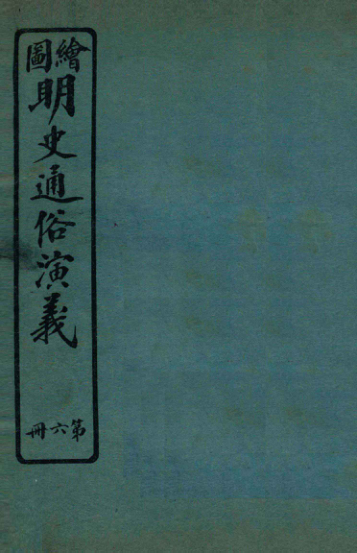 繪圖
明史通俗演義
第六冊